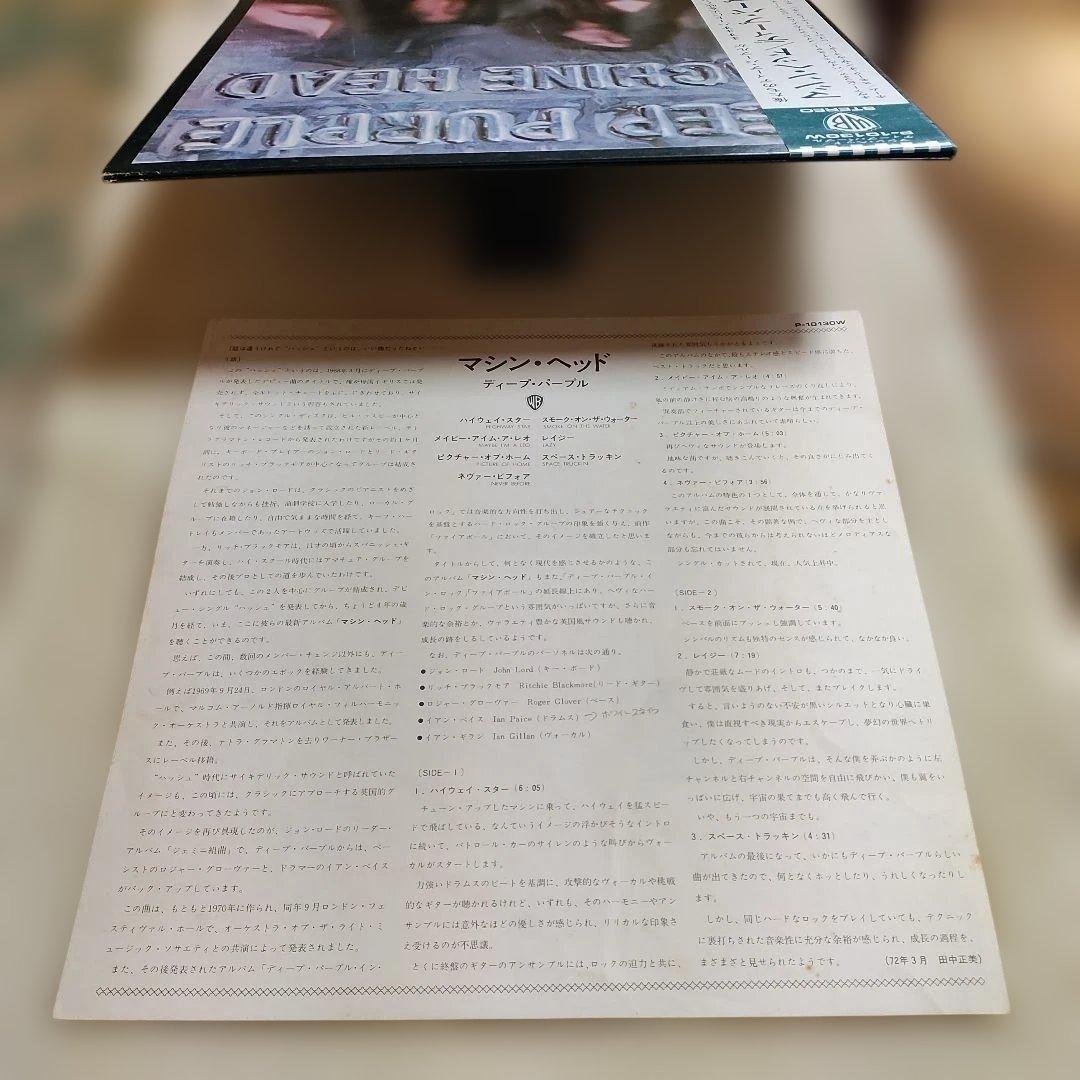 DEEP PURPLE
MACHINE HEAD
STEREO
P-10130W
P-10130W
マシン・ヘッド
ディープ・パープル
ハイウェイ・スター
HIGHWAY STAR
スモーク・オン・ザ・ウォーター
SMOKE ON THE WATER
メイビー・アイム・ア・レオ
MAYBE I'M A LEO
レイジー
LAZY
ピクチャー・オブ・ホーム
PICTURE OF HOME
スペース・トラッキン
SPACE TRUCKIN
ネヴァー・ビフォア
NEVER BEFORE
それまでのジョン・ロードは、クラシックのピアニストをめざ
いずれにしても、この2人を中心にグループが結成され、デビ
ュー・シングル“ハッシュ”を発表してから、ちょうど4年の歳
月を経て、いま、ここに彼らの最新アルバム「マシン・ヘッド」
を聴くことができるのです。
思えば、この間、数回のメンバー・チェンジ以外にも、ディー
プ・パープルは、いくつかのエポックを経験してきました。
例えば1969年9月24日、ロンドンのロイヤル・アルバート・ホ
ールで、マルコム・アーノルド指揮ロイヤル・フィルハーモニッ
ク・オーケストラと共演し、それをアルバムとして発表しました。
また、その後、テトラ・グラマトンを去りワーナー・ブラザー
スにレーベル移籍。
“ハッシュ”時代にサイキデリック・サウンドと呼ばれていた
イメージも、この頃には、クラシックにアプローチする英国的グ
ループにと変わってきたようです。
そのイメージを再び具現したのが、ジョン・ロードのリーダー・
アルバム「ジェミニ組曲」で、ディープ・パープルからは、ベー
シストのロジャー・グローヴァーと、ドラマーのイアン・ペイス
がバック・アップしています。
この曲は、もともと1970年に作られ、同年9月ロンドン・フェ
スティヴァル・ホールで、オーケストラ・オブ・ザ・ライト・ミ
ュージック・ソサエティとの共演によって発表されました。
また、その後発表されたアルバム「ディープ・パープル・イン・
ロック」では音楽的な方向性を打ち出し、シュアーなテクニック
を基盤とするハード・ロック・グループの印象を植え与え、前作
「ファイアボール」において、そのイメージを確立したと思いま
す。
タイトルからして、何となく現代を感じさせるかのような、こ
のアルバム「マシン・ヘッド」もまた、「ディープ・パープル・イ
ン・ロック」「ファイアボール」の延長線上にあり、ヘヴィなハー
ド・ロック・グループという雰囲気がいっぱいですが、さらに音
楽的な余裕とか、ヴァラエティ豊かな英国風サウンドも聴かれ、
成長の跡をしるしているようです。
なお、ディープ・パープルのパーソネルは次の通り。
●ジョン・ロード John Lord(キー・ボード)
●リッチ・ブラックモア Ritchie Blackmore(リード・ギター)
●ロジャー・グローヴァー Roger Glover(ベース)
●イアン・ペイス Ian Paice(ドラムス)
●イアン・ギラン Ian Gillan(ヴォーカル)
〔SIDE-1〕
1. ハイウェイ・スター(6:05)
チューン・アップしたマシンに乗って、ハイウェイを猛スピー
ドで飛ばしている、なんていうイメージの浮かびそうなイントロ
に続いて、パトロール・カーのサイレンのような叫びからヴォー
カルがスタートします。
力強いドラムスのビートを基調に、攻撃的なヴォーカルや挑戦
的なギターが聴かれるけれど、いずれも、そのハーモニーやアン
サンブルには意外なほどの優しさが感じられ、リリカルな印象さ
え受けるのが不思議。
とくに終盤のギターのアンサンブルには、ロックの迫力と共に、
このアルバムのなかで、最もステレオ感とスピード感に満ちた、
ベスト・トラックだと思います。
2. メイビー・アイム・ア・レオ(4:51)
3. ピクチャー・オブ・ホーム(5:03)
再びヘヴィなサウンドが登場します。
地味な曲ですが、聴きこんでいくと、その良さがにじみ出てく
るのです。
4. ネヴァー・ビフォア(3:56)
このアルバムの特色の1つとして、全体を通して、かなりヴァ
ラエティに富んだサウンドが展開されている点を挙げられると思
いますが、この曲こそ、その顕著な例で、ヘヴィな部分を主とし
ながらも、今までの彼らからは考えられないほどメロディアスな
部分も忘れてはいません。
シングル・カットされて、現在、人気上昇中。
〔SIDE-2〕
1. スモーク・オン・ザ・ウォーター(5:40)
ベースを前面にプッシュし強調しています。
シンバルのリズムも独特のセンスが感じられて、なかなか良い。
2. レイジー(7:19)
静かで荘厳なムードのイントロも、つかのまで、一気にドライ
ヴして雰囲気を盛りあげ、そして、またブレイクします。
すると、言いようのない不安が黒いシルエットとなり心臓に巣
食い、僕は直視すべき現実からエスケープし、夢幻の世界へトリ
ップしたくなってしまうのです。
しかし、ディープ・パープルは、そんな僕を弄ぶかのように左
チャンネルと右チャンネルの空間を自由に飛びかい、僕も翼をい
っぱいに広げ、宇宙の果てまでも高く飛んで行く。
いや、もう一つの宇宙までも。
3. スペース・トラッキン(4:31)
アルバムの最後になって、いかにもディープ・パープルらしい
曲が出てきたので、何となくホッとしたり、うれしくなったりし
ます。
しかし、同じハードなロックをプレイしていても、テクニック
に裏打ちされた音楽性に充分な余裕が感じられ、成長の過程を、
まざまざと見せられたようです。
(72年3月 田中正美)